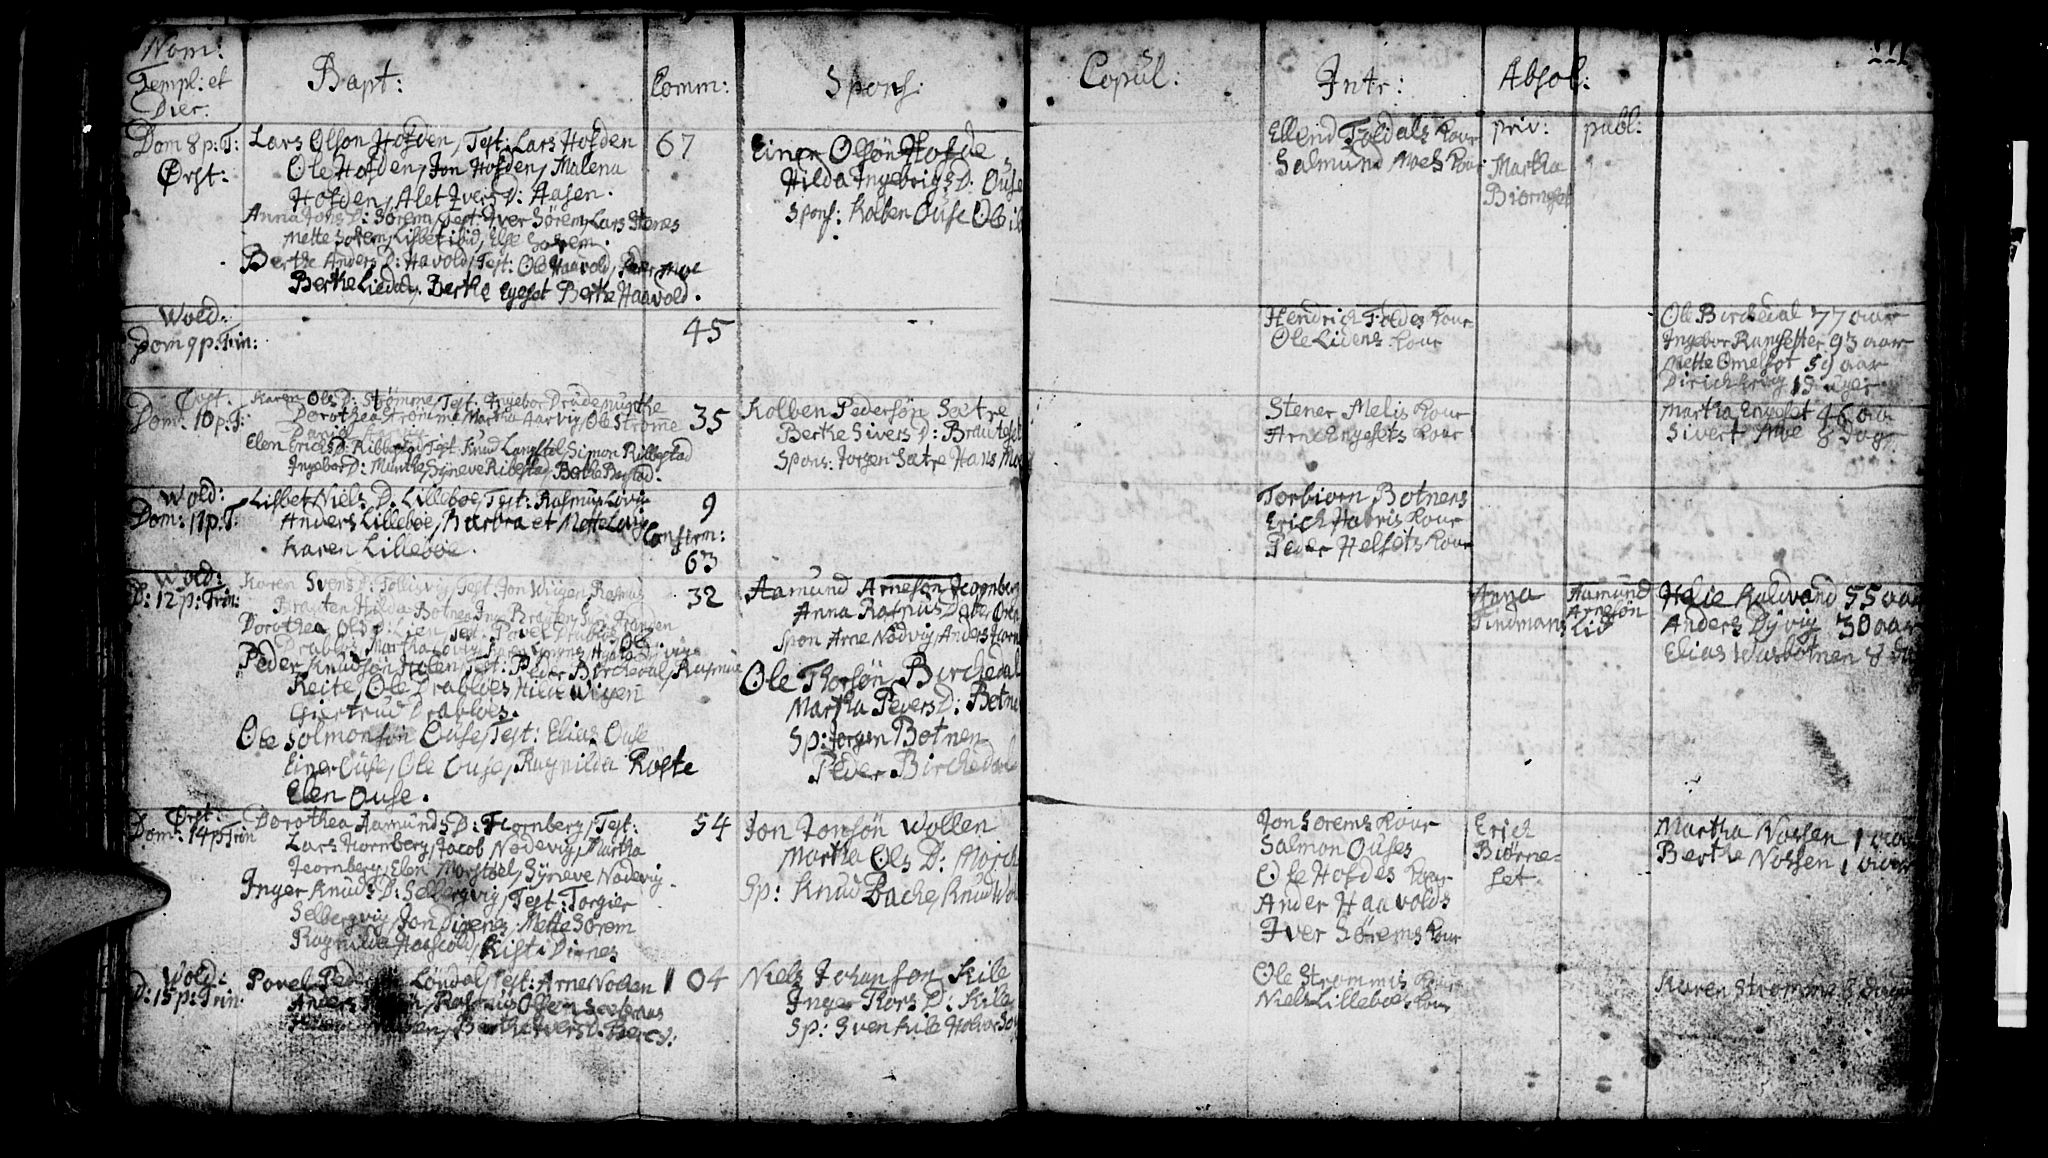 Nom:
Templ: et
Dier.
Bapt:
Comm:
Spons:
Copul:
Intr:
Absol:
Dom 8 p: T:
Ørst:
Lars Olson Hofden, Test: Lars Hofden
Ole Hofden, Jon Hofden, Malena
Hofden, Alet Ivers D: Aasen.
Anna Jons D: Sørem, Test: Iver Sørem, Lars Stenes
Mette Sørem, Lisbet ibid, Else Sørem.
Berthe Anders D: Havold, Test: Ole Haavold, Peder Moe
Berthe Liedal, Berthe Egeset Berthe Haavold.
67
Einer Olsøn Hofde
Hilda Ingebrigs D. Ouse
Spons: Kolben Ouse Ole
Ellend Foldals Kone
Salmund Moes Kone
priv:
Martha
Biørneset
publ:
Wold:
Dom 9 p: Trin:
45
Hendrich Foldes Kone
Ole Lidens Kone
Ole Birchedal 77 aar
Ingebor Rungsetter 93 aar
Mette Omelfot 59 aar
19 uger
Ørst.
Dom: 10 p: T:
Karen Ols D: Strømme, Test: Ingebor Drudemunthe
Dorothea Strømme, Martha Aarvig, Ole Strømme
Elen Erichs D: Ribbestad, Test: Knud Langstøl, Simon Ribbestad
Ingebor D: Munthe, Syneve Ribestad, Berthe
35
Kolben Pedersøn Sætre
Berthe Sivers D: Brauteset
Spons: Jorgen Sætre Hans Moe
Stener Melis Kone
Arne Engesets Kone
Martha Engeset 46 aar
Sivert Moe 8 dag
Wold:
Dom: 11 p: T:
Lisbet Niels D. Lillebøe, Test: Rasmus Lovig
Anders Lillebøe, Barbra et Mette Lovig
Karen Lillebøe.
9
Confirm:
63
Torbiørn Botners
Erich Hovris Kone
Peder Helsets Kone
Wold:
D: 12 p: Trin:
Karen Svens D: Follisvig, Test: Jon Wiigen, Rasmus
Brauten, Hilda Botnen, Inge Brauten, Siri Stranden
Dorothea Ols D: Lien, Test: Povel Drabløs, Ole
Drabløs, Martha Lovig, Karen
Peder Knudsøn Holen, Test: Peder Birchedal, Rasmus
Reite, Ole Drabløes, Hilda Wigen
Giertrud Drabløs.
Ole Solmonsøn Ouse, Test: Elias Ouse
Einer Ouse, Ole Ouse, Ragnilda Røste
Elen Ouse.
32
Aamund Arnesøn Hornberg
Anna Rasmus D.
Spon Arne Nødvig, Anders Horn
Ole Thorsøn Birchedal
Martha Peders D: Botne
Sp: Jorgen Botnen
Peder Birchedal
Anna
Findmans
Aamund
Arnesøn
Lid
Helie Kaldvand 55 aar
Anders Dyvig 30 aar
Elias Wasbotnen 8 da
Ørst:
Dom: 14 p Trin
Dorothea Aamunds D: Hornberg, Test:
Lars Hornberg, Jacob Nødevig, Martha
Hornberg, Elen Morstøel, Syneve Nødevig.
Inger Knuds D: Selbergvig, Test: Torgier
Selbergvig, Jon Digenes, Mette Sørem
Ragnilda Haavold, Kisti Digenes
54
Jon Jonsøn Wollen
Martha Ols D: Morch
Sp: Knud Bache, Knud Wo
Jon Sørems Kone
Salmon Ouses
Ole Hofdes Kone
Ander Haavolds
Iver Sørems Kone
Erich
Biørne=
set
Martha Nossen 1 aar
Berthe Nossen 1 aar
Wold:
D: 15 p: Trin:
Povel Ped Løndal, Test: Arne Nochen
Anders Rasmus Olsen
Berthe Ivers D.
104
Niels Johanson Kile
Inger Thors D: Kile
Sp: Sven Kile Holver
Ole Strommis Kone
Niels Lillebøes Kone
Karen Strømme 8 dage